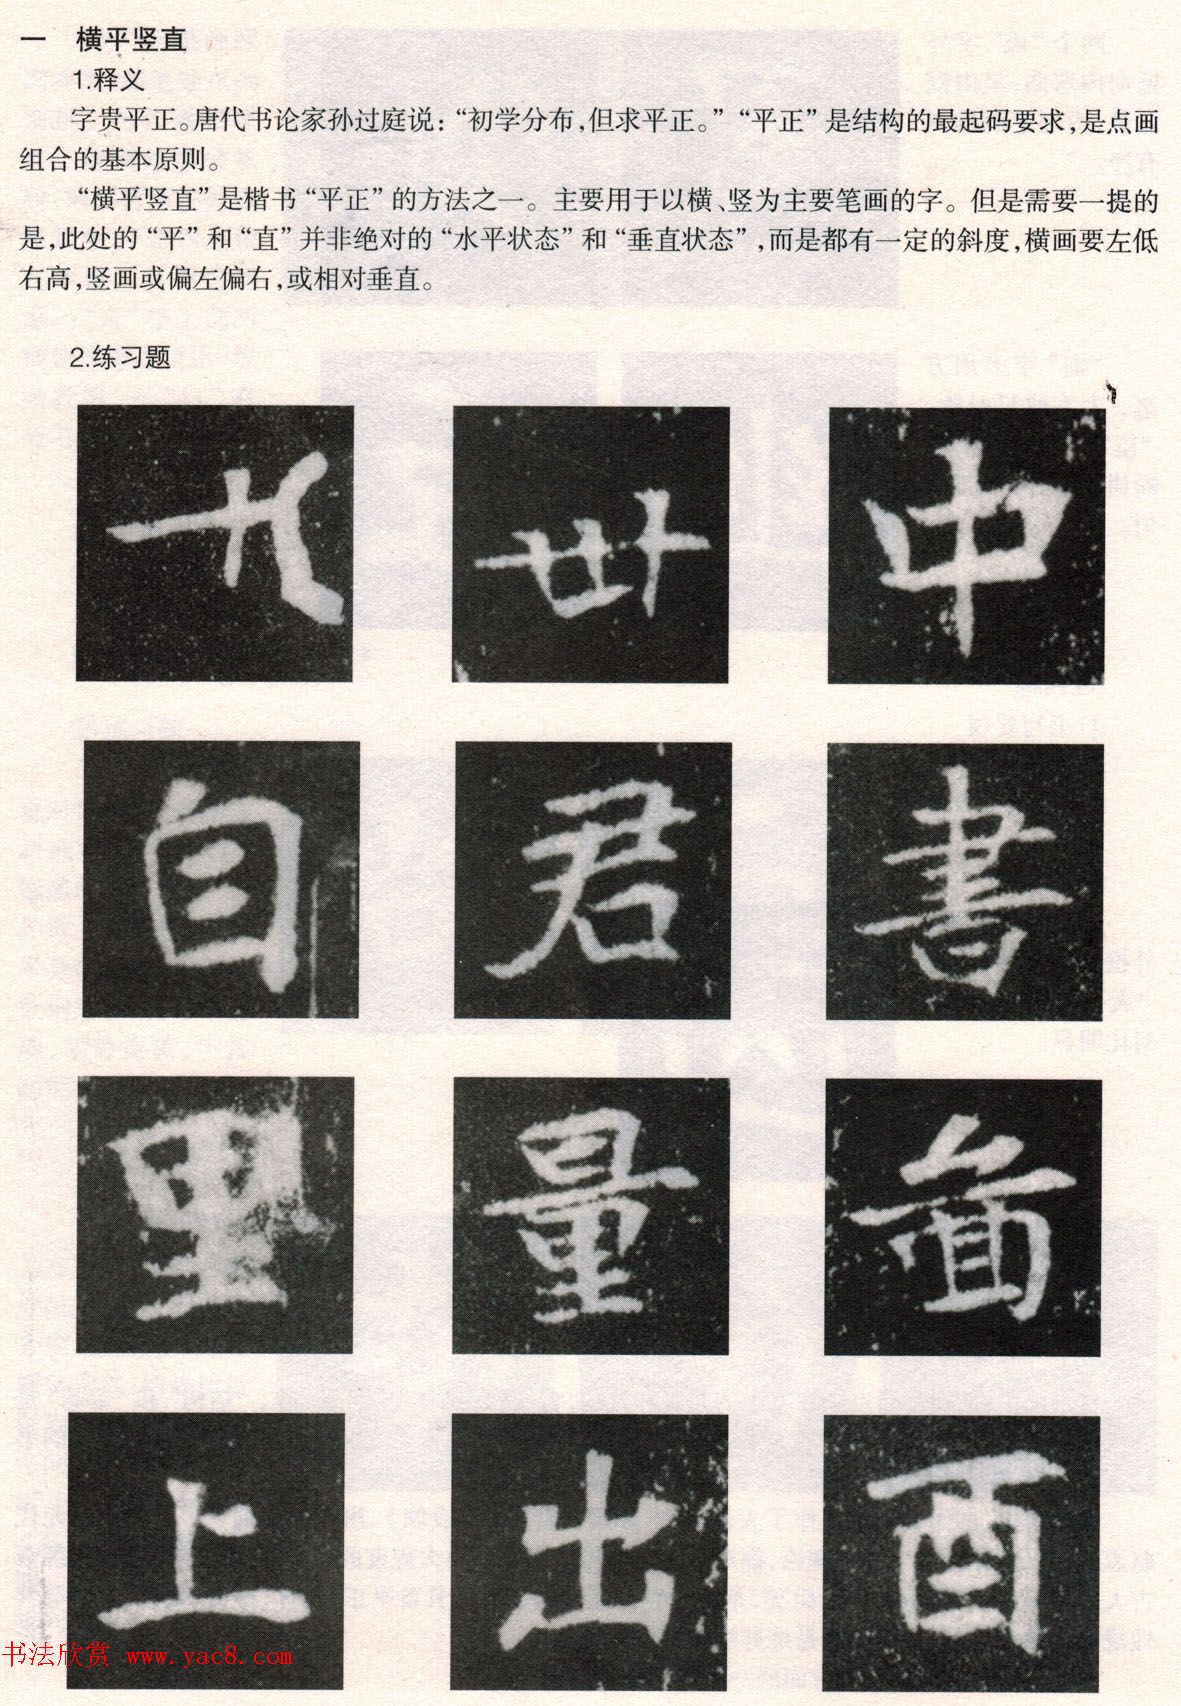 一 横平竖直
1.释义
字贵平正。唐代书论家孙过庭说：“初学分布，但求平正。”“平正”是结构的最起码要求，是点画
组合的基本原则。
“横平竖直”是楷书“平正”的方法之一。主要用于以横、竖为主要笔画的字。但是需要一提的
是，此处的“平”和“直”并非绝对的“水平状态”和“垂直状态”，而是都有一定的斜度，横画要左低
右高，竖画或偏左偏右，或相对垂直。
2.练习题
中
自 君 書
里 量
上 出 酉
书法欣赏 www.yac8.com